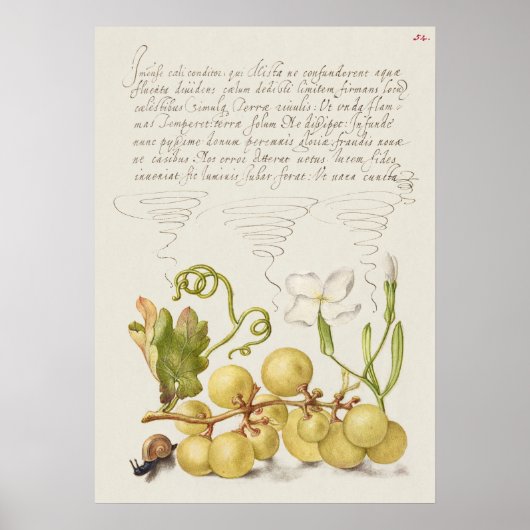 54.
Jmense cæli conditor, qui Mista ne confunderent aquæ
fluenta diuidens cælum dedisti limitem firmans locũ
cælestibus Simulq, Terræ riuulis: Vt vnda flam
mas Temperet: terræ solum Ne dissipet: Infunde
nunc pyssime donum perennis gloriæ, fraudis nouæ
ne casibus Nos error atterat uetus lutem fides
inueniat sic luminis Iubar ferat: Vt uana cuncta